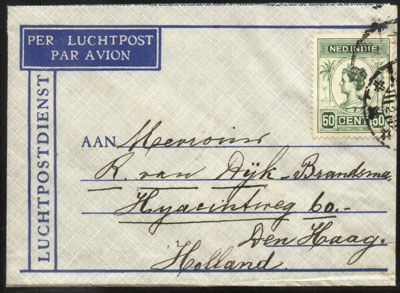 PER LUCHTPOST
PAR AVION
NED INDIE
50 CENT 50
LUCHTPOSTDIENST
AAN Mevrouw
R. van Dijk-Brantsma
Hyacintweg 60.-
Den Haag.
Holland.